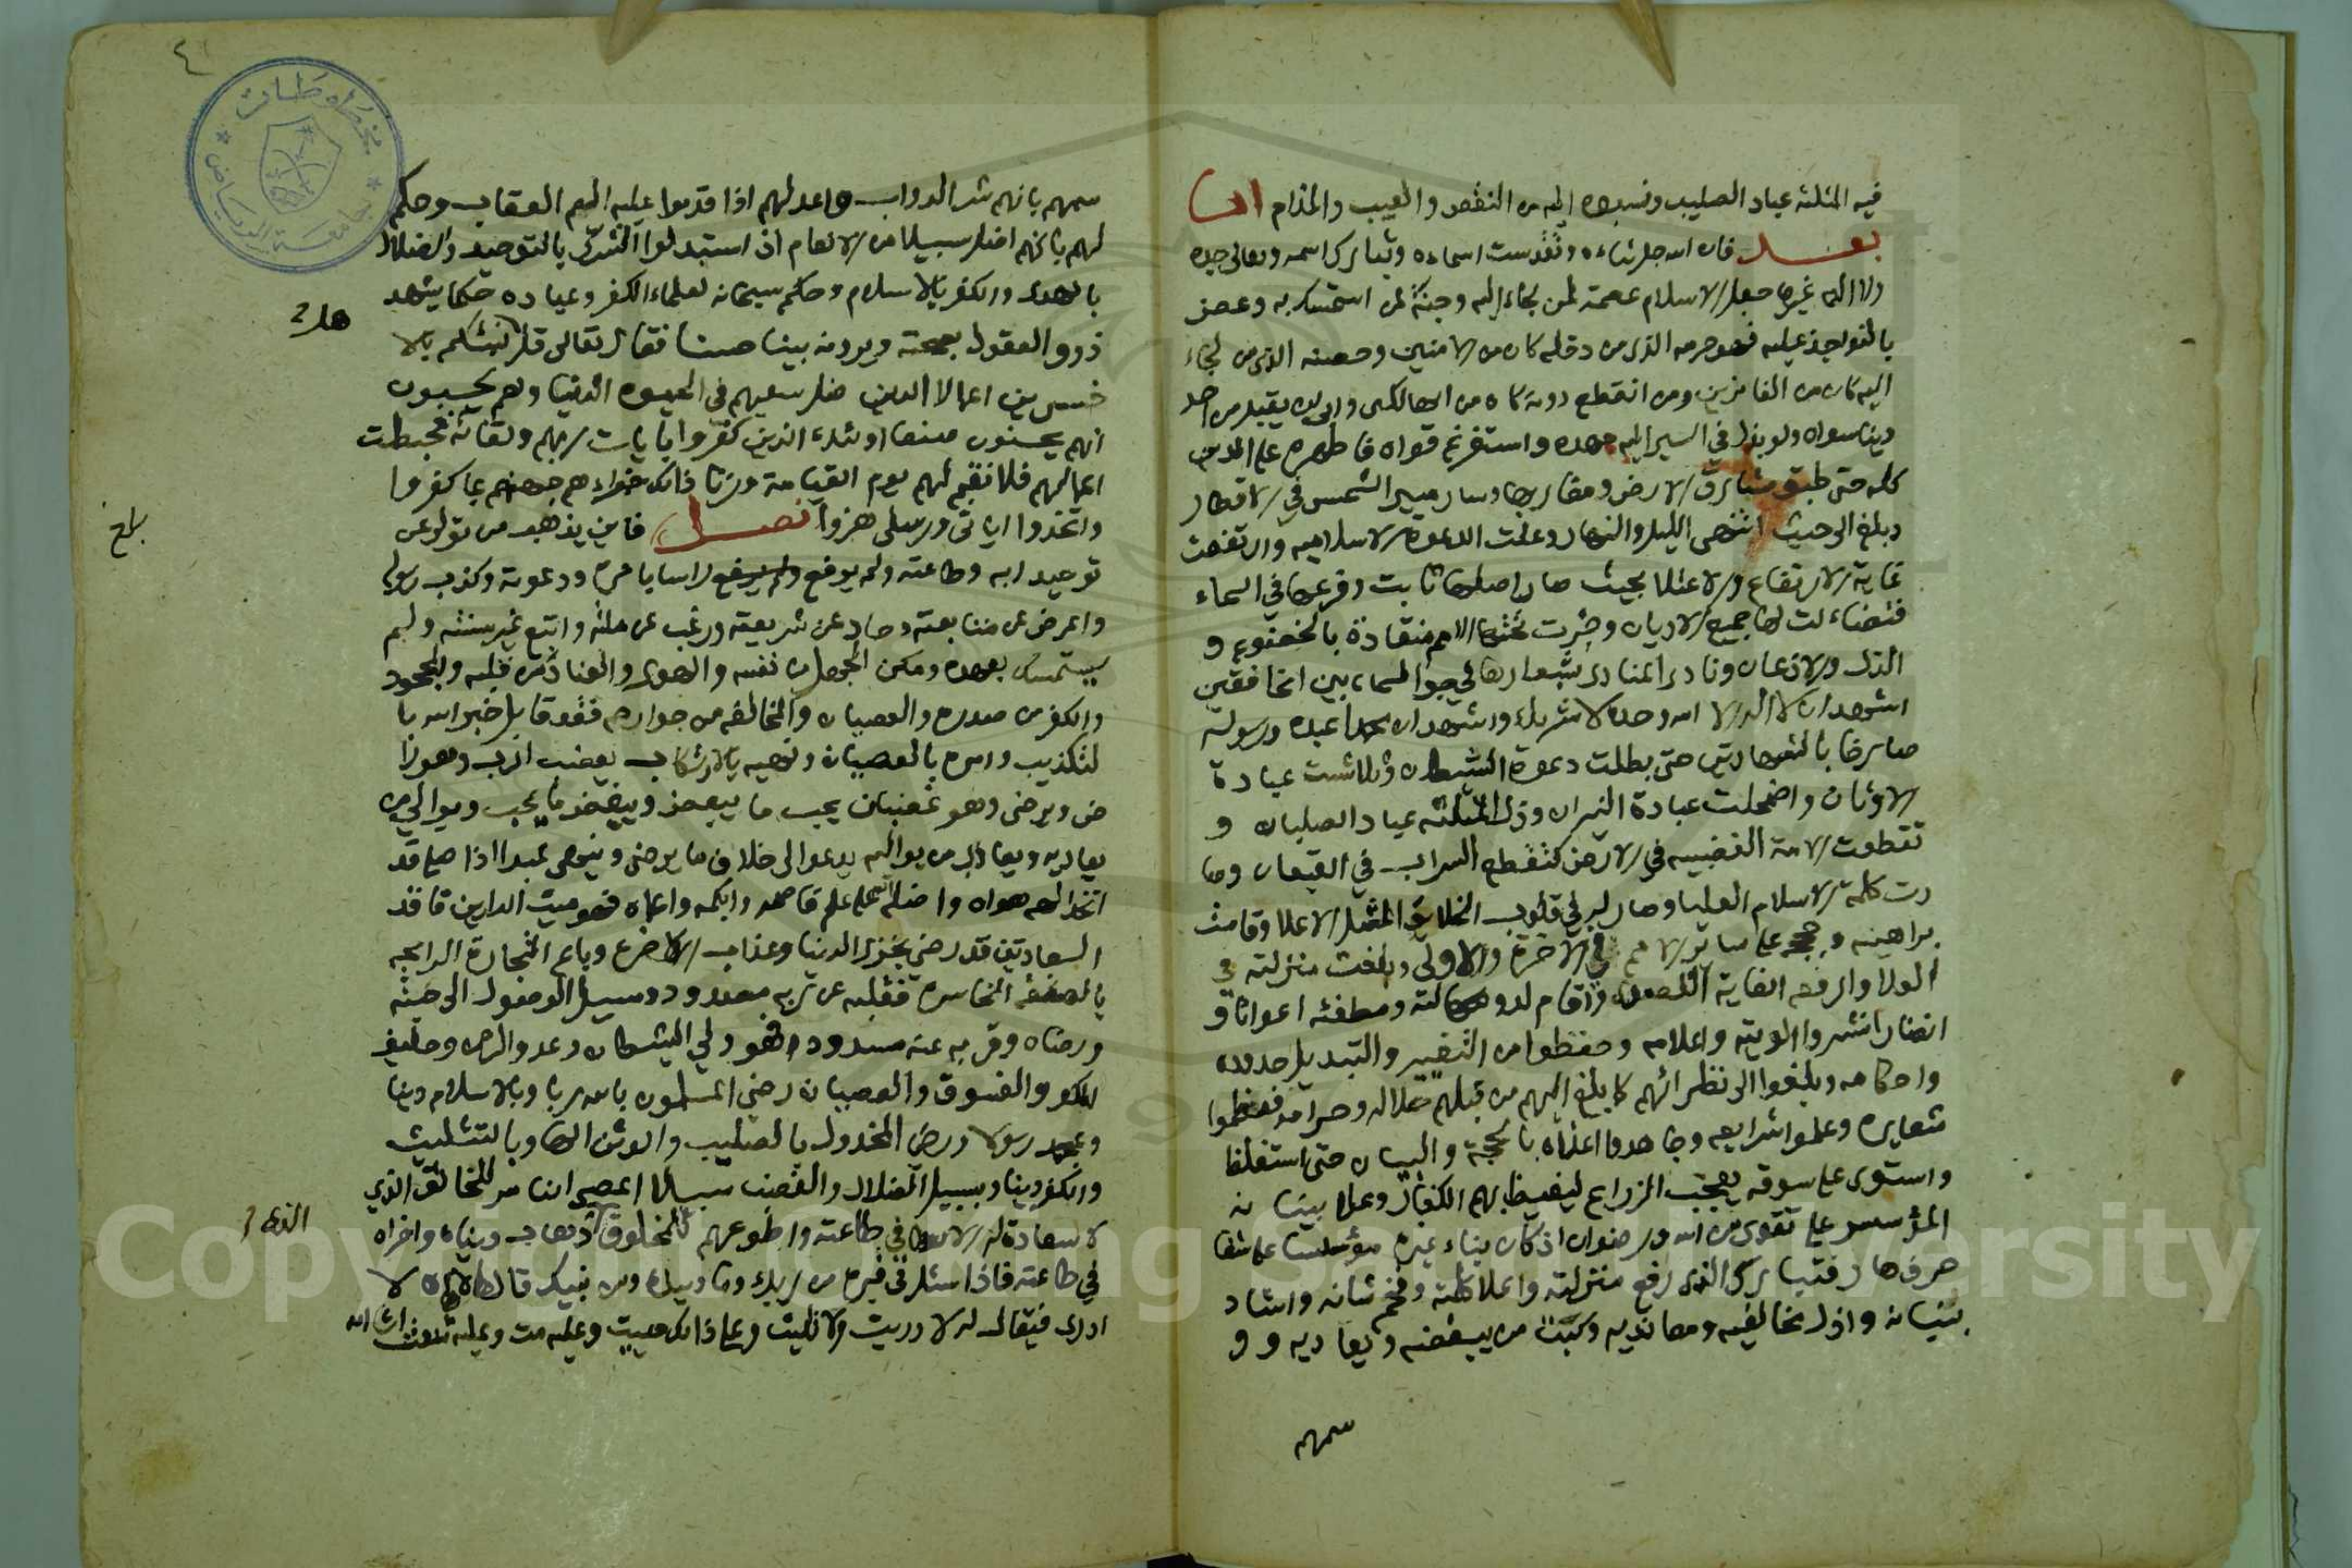 فيه المثلثه عباد الصليب ونسبوه اليه من النقص والعيب والمذام اما
بعد فان الله جل ثناءه وتقدست اسماءه وتبارك اسمه وتعالى جده
ولا اله غيره جعل الاسلام عصمة لمن لجاء اليه وجنة لمن استمسك به وعض
بالنواجذ عليه فهو حرمه الذي من دخله كان من الامنين وحصنه الذي من لجاء
اليه كان من الفائزين ومن انقطع دونه كان من الهالكين وابى ان يقبل من احد
دينا سواه ولو بذل في السير اليه جهده واستفرغ قواه فاظهره على الدين
كله حتى طبق مشارق الارض ومغاربها وسار مسير الشمس في الاقطار
وبلغ الى حيث انتهى الليل والنهار وعلت الدعوة الاسلاميه وارتفعت
غاية الارتفاع والاعتلا بحيث صار اصلها ثابت وفرعها في السماء
فتضاءلت لها جميع الاديان وجرت تحتها الامم منقادة بالخضوع و
الذل والاذعان ونادى المنادى بشعارها في جو السماء بين الخافقين
اشهد ان لا اله الا الله وحده لا شريك له واشهد ان محمدا عبده ورسوله
صارخا بالشهادتين حتى بطلت دعوة الشيطان وتلاشت عبادة
الاوثان واضمحلت عبادة النيران وذل المثلثه عباد الصلبان و
تقطعت الامة الغضبيه في الارض كتقطع السراب في القيعان وصا
رت كلمة الاسلام العليا وصار له في قلوب الخلائق المثل الاعلا وقامت
براهينه وحججه على سائر الامم في الاخرة والاولى وبلغت منزلته في
العلا والرفعه الغاية القصوى واقام لدولته ومصطفيه اعوانا و
انصارا نشروا الويته واعلامه وحفظوا من التغيير والتبديل حدوده
واحكامه وبلغوا الى نظرائهم كما بلغ اليهم من قبلهم حلاله وحرامه فعظموا
شعايره وعلموا شرايعه وجاهدوا اعداه بالحجة والبيان حتى استغلظ
واستوى على سوقه يعجب الزراع ليغيظ بهم الكفار وعلا بنيانه
المؤسس على تقوى من الله ورضوان اذ كان بناء غيره مؤسسا على شفا
جرف هار فتبارك الذي رفع منزلته واعلا كلمته وفخم شانه واشاد
بنيانه واذل مخالفيه ومعانديه وكبت من يبغضه ويعاديه و و
سمهم
سمهم بانهم شر الدواب واعد لهم اذا قدموا عليه اليم العقاب وحكم
لهم بانهم اضل سبيلا من الانعام اذ استبدلوا الشرك بالتوحيد والضلال
بالهدى والكفر بالاسلام وحكم سبحانه لعلماء الكفر وعباده حكما يشهد
هل
ذوو العقول بصحته ويرونه بينا حسنا فقال تعالى قل ننبئكم بالا
خسرين اعمالا الذين ضل سعيهم في الحيوه الدنيا وهم يحسبون
انهم يحسنون صنعا اولئك الذين كفروا بايات ربهم ولقائه فحبطت
اعمالهم فلا نقيم لهم يوم القيامة وزنا ذلك جزاءهم جهنم بما كفروا
واتخذوا اياتى ورسلى هزوا فصل فاين يذهب من تولى عن
بلغ
توحيد ربه وطاعته ولم يرفع راسا بامره ودعوته وكذب رسوله
واعرض عن متابعته وحاد عن شريعته ورغب عن ملته واتبع غير سنته ولم
يستمسك بعهده ومكن الجهل من نفسه والهوى والعناد من قلبه والجحود
والكفر من صدره والعصيان والمخالفه من جوارحه فقد قابل خبر الله با
لتكذيب وامره بالعصيان ونهيه بالارتكاب يغضب الرب وهو را
ض ويرضى وهو غضبان يحب ما يبغض ويبغض ما يحب ويوالي من
يعاديه ويعادي من يواليه يدعو الى خلاف ما يرضى وينهى عبدا اذا صلى قد
اتخذ الهه هواه واضله الله على علم فاصمه وابكمه واعماه فهو ميت الدارين فاقد
السعادتين قد رضى بخزى الدنيا وعذاب الاخره وباع التجارة الرابحه
بالصفقه الخاسره فقلبه عن ربه مصدود وسبيل الوصول الى جنته
ورضاه وقربه عنه مسدود فهو ولي الشيطان وعدو الرحمن وحليف
الكفر والفسوق والعصيان رضى المسلمون بالله ربا وبالاسلام دينا
وبمحمد رسولا ورضى المخذول بالصليب والوثن الها وبالتثليث
والكفر دينا وبسبيل الضلال والغضب سبيلا اعصى الناس للخالق الذي
لا سعادة له الا في طاعته واطوعهم للمخلوق الذى ذهاب دنياه واخراه
في طاعته فاذا سئل في قبره من ربك وما دينك ومن نبيك قال هاه هاه لا
ادرى فيقال له لا دريت ولا تليت وعلى ذلك حييت وعليه مت وعليه تبعث ان شاء الله